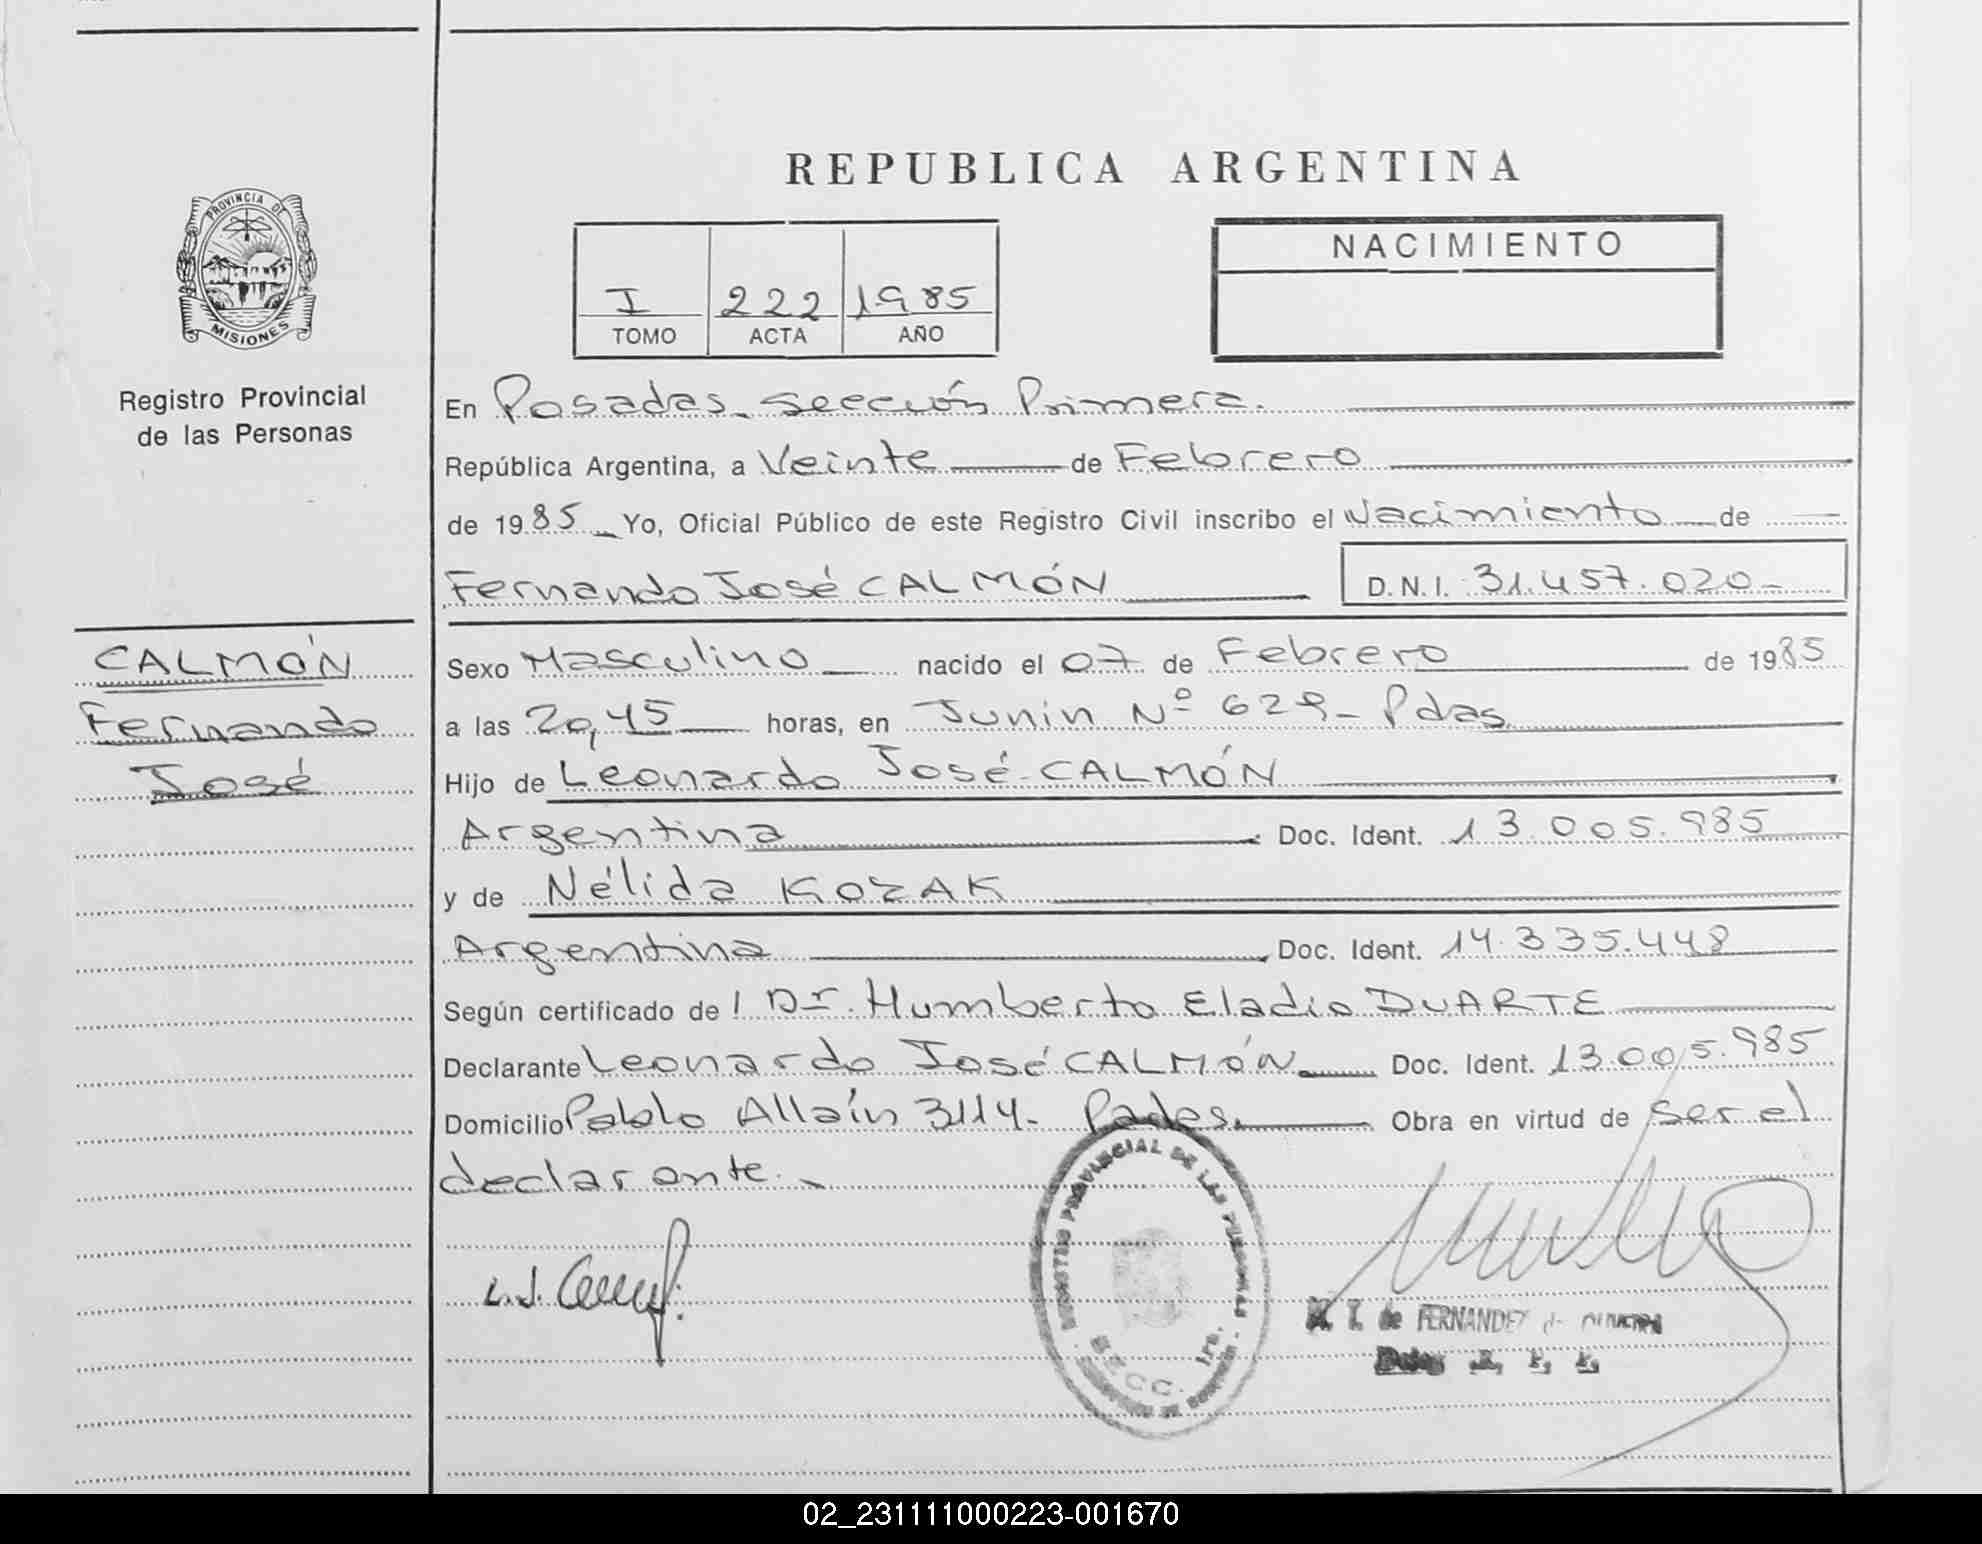 REPUBLICA ARGENTINA
PROVINCIA DE
MISIONES
Registro Provincial
de las Personas
I 222 1985
TOMO ACTA AÑO
NACIMIENTO
En Posadas. sección Primera.
República Argentina, a Veinte de Febrero
de 1985 Yo, Oficial Público de este Registro Civil inscribo el Nacimiento de
Fernando José CALMÓN D.N.I. 31.457.020-
CALMÓN
Fernando
José
Sexo Masculino nacido el 07 de Febrero de 1985
a las 20,45 horas, en Junín Nº 629- Pdas
Hijo de Leonardo José CALMÓN
Argentina Doc. Ident. 13.005.985
y de Nélida KOZAK
Argentina Doc. Ident. 14.335.448
Según certificado de l Dr. Humberto Eladio DUARTE
Declarante Leonardo José CALMÓN Doc. Ident. 13.005.985
Domicilio Pablo Allaín 3114- Obra en virtud de ser el
declarante.
REGISTRO PROVINCIAL DE LAS PERSONAS
SECC. 1ra.
L.J.
de FERNANDEZ de
02_231111000223-001670